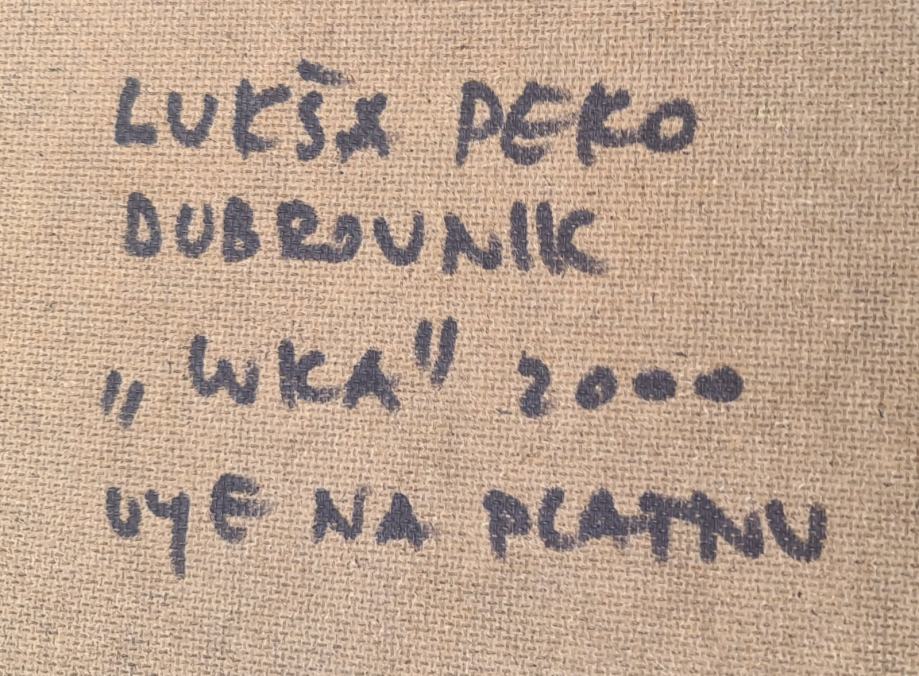 LUKŠA PEKO
DUBROVNIK
„LUKA" 2000
ULJE NA PLATNU